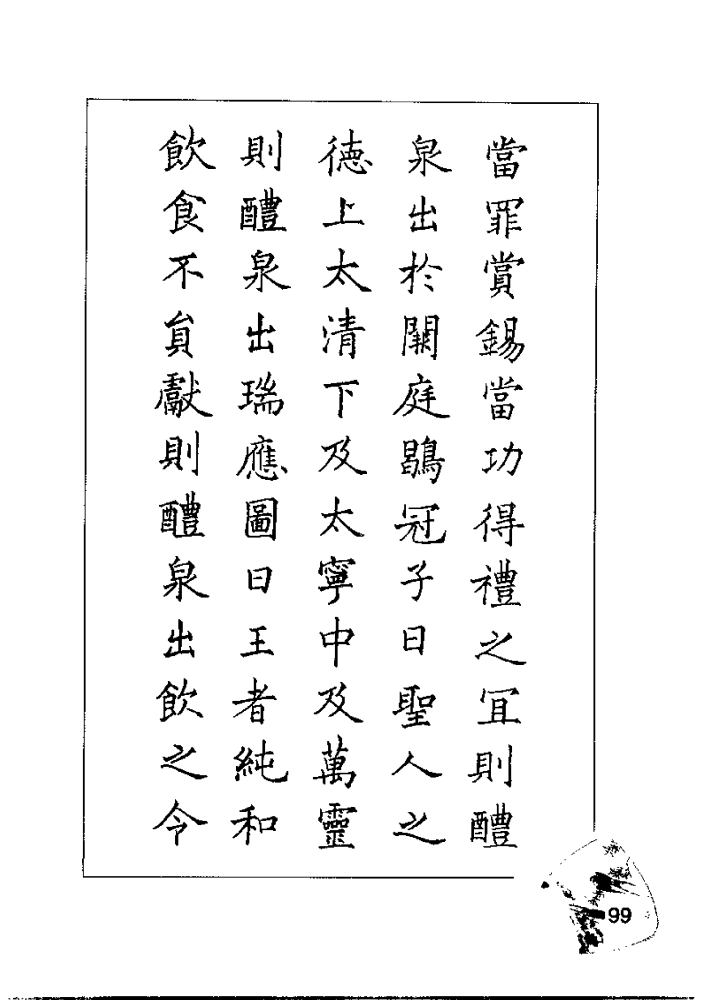 當罪賞錫當功得禮之冝則醴
泉出於闕庭鶡冠子曰聖人之
德上太清下及太寧中及萬靈
則醴泉出瑞應圖曰王者純和
飲食不貟獻則醴泉出飲之令
99